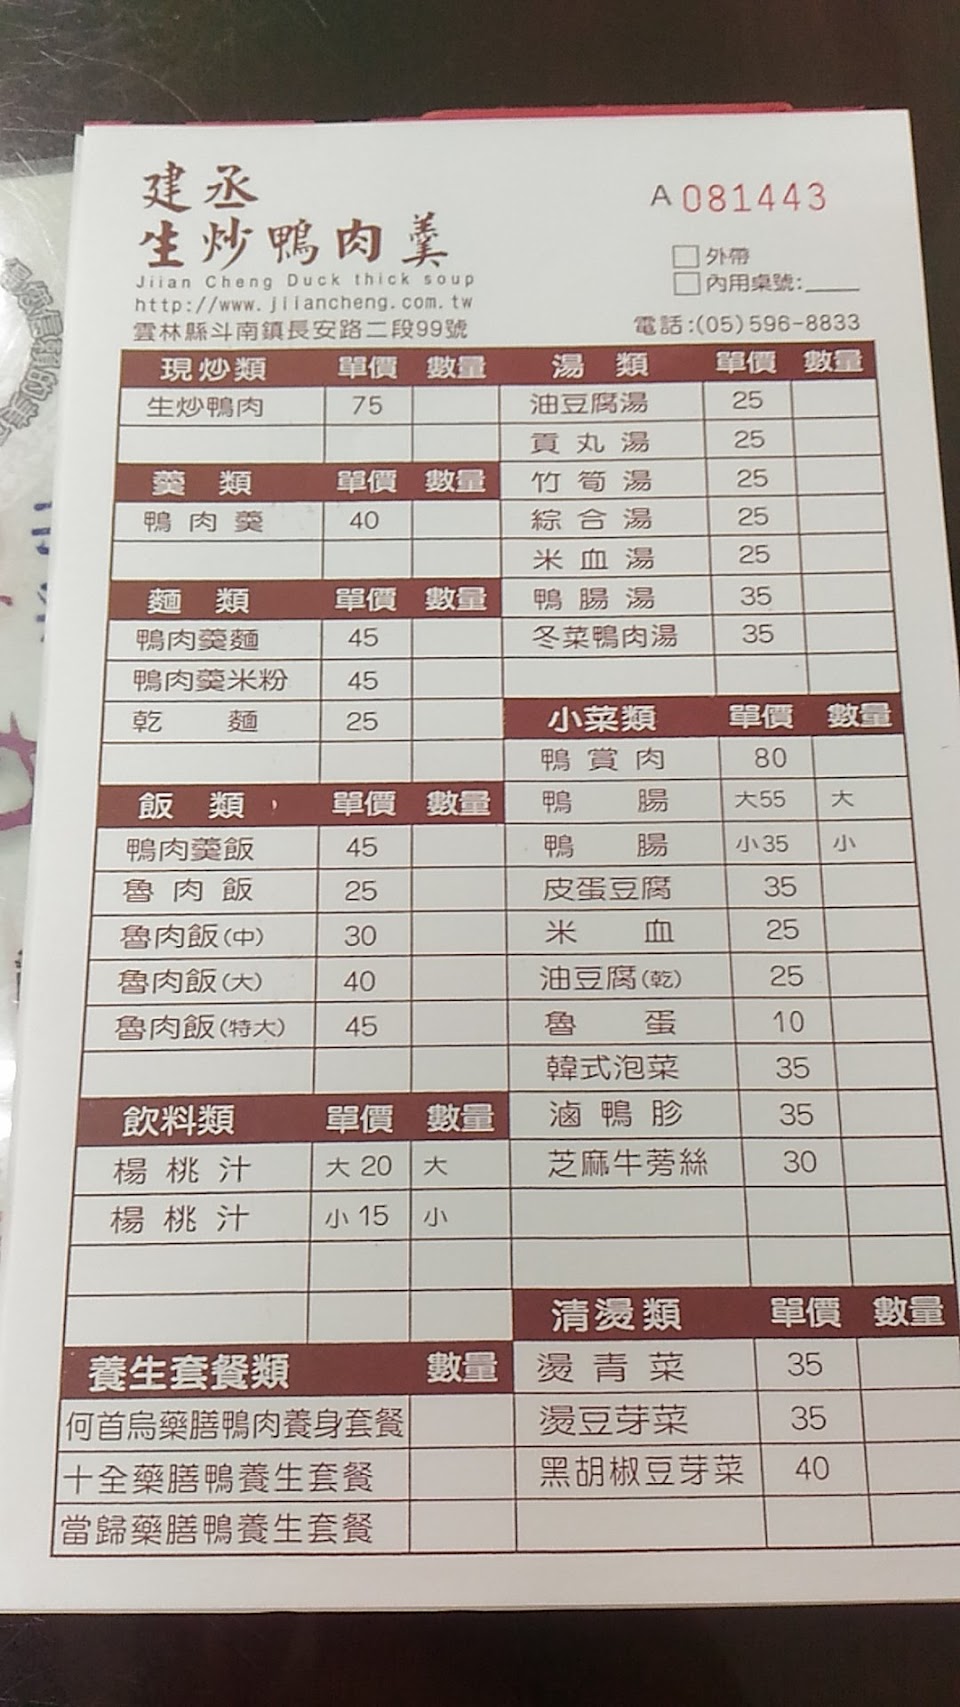 建丞
生炒鴨肉羹
Jiian Cheng Duck thick soup
http://www.jiiancheng.com.tw
雲林縣斗南鎮長安路二段99號
A 081443
外帶
內用桌號:
電話:(05)596-8833
現炒類 單價 數量
生炒鴨肉 75
羹類 單價 數量
鴨肉羹 40
麵類 單價 數量
鴨肉羹麵 45
鴨肉羹米粉 45
乾麵 25
飯類 單價 數量
鴨肉羹飯 45
魯肉飯 25
魯肉飯(中) 30
魯肉飯(大) 40
魯肉飯(特大) 45
飲料類 單價 數量
楊桃汁 大20 大
楊桃汁 小15 小
養生套餐類 數量
何首烏藥膳鴨肉養身套餐
十全藥膳鴨養生套餐
當歸藥膳鴨養生套餐
湯類 單價 數量
油豆腐湯 25
貢丸湯 25
竹筍湯 25
綜合湯 25
米血湯 25
鴨腸湯 35
冬菜鴨肉湯 35
小菜類 單價 數量
鴨賞肉 80
鴨腸 大55 大
鴨腸 小35 小
皮蛋豆腐 35
米血 25
油豆腐(乾) 25
魯蛋 10
韓式泡菜 35
滷鴨胗 35
芝麻牛蒡絲 30
清燙類 單價 數量
燙青菜 35
燙豆芽菜 35
黑胡椒豆芽菜 40